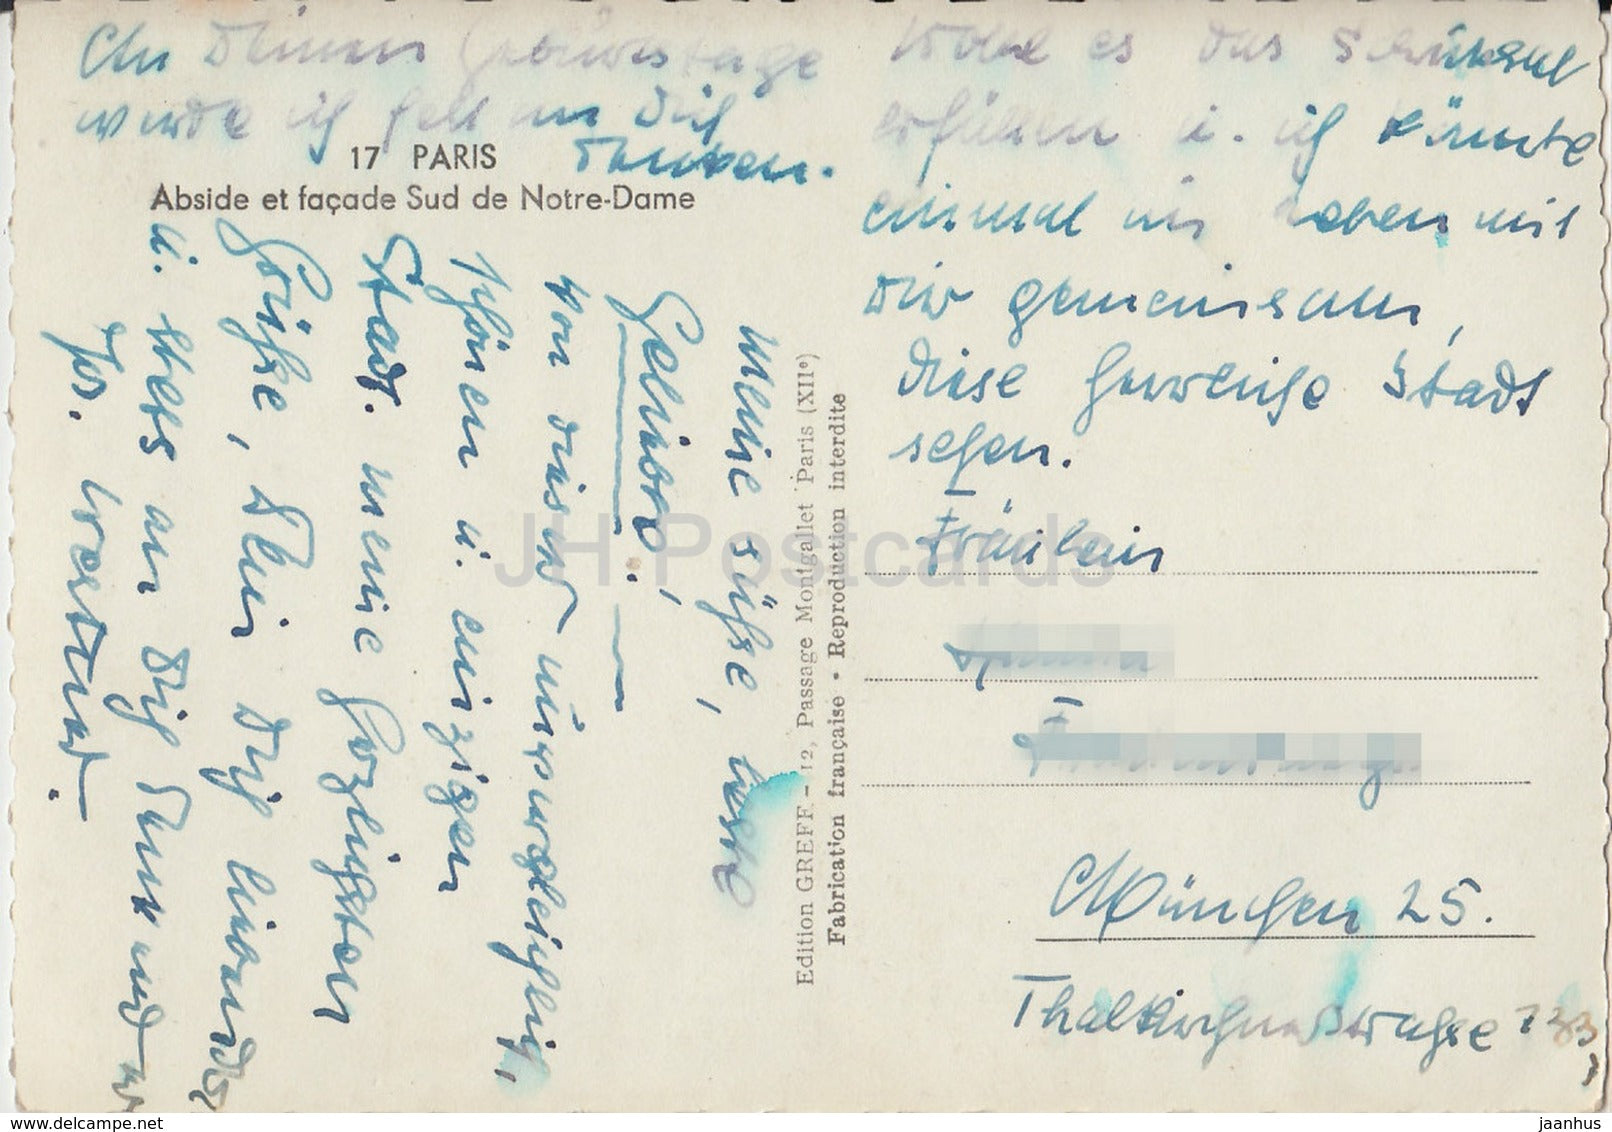 An Deinem Geburtstage
wurde ich fest an Dich
denken.
17 PARIS
Abside et façade Sud de Notre-Dame
Meine süsse, beste
Geliebte!
Von dieser unvergleichlich
schönen u. einzigen
Stadt, meine herzlichsten
Grüße, Dein Dich liebender
u. stets an Dich denkender
Jos.
Edition GREFF. – 12, Passage Montgallet Paris (XIIᵉ)
Fabrication française • Reproduction interdite
Wolle es das Schicksal
erfüllen u. ich könnte
einmal im Leben mit
Dir gemeinsam,
diese herrliche Stadt
sehen.
Fräulein
München 25.
Thalkirchnerstrasse 133
JH Postcards
www.delcampe.net
jaanhus